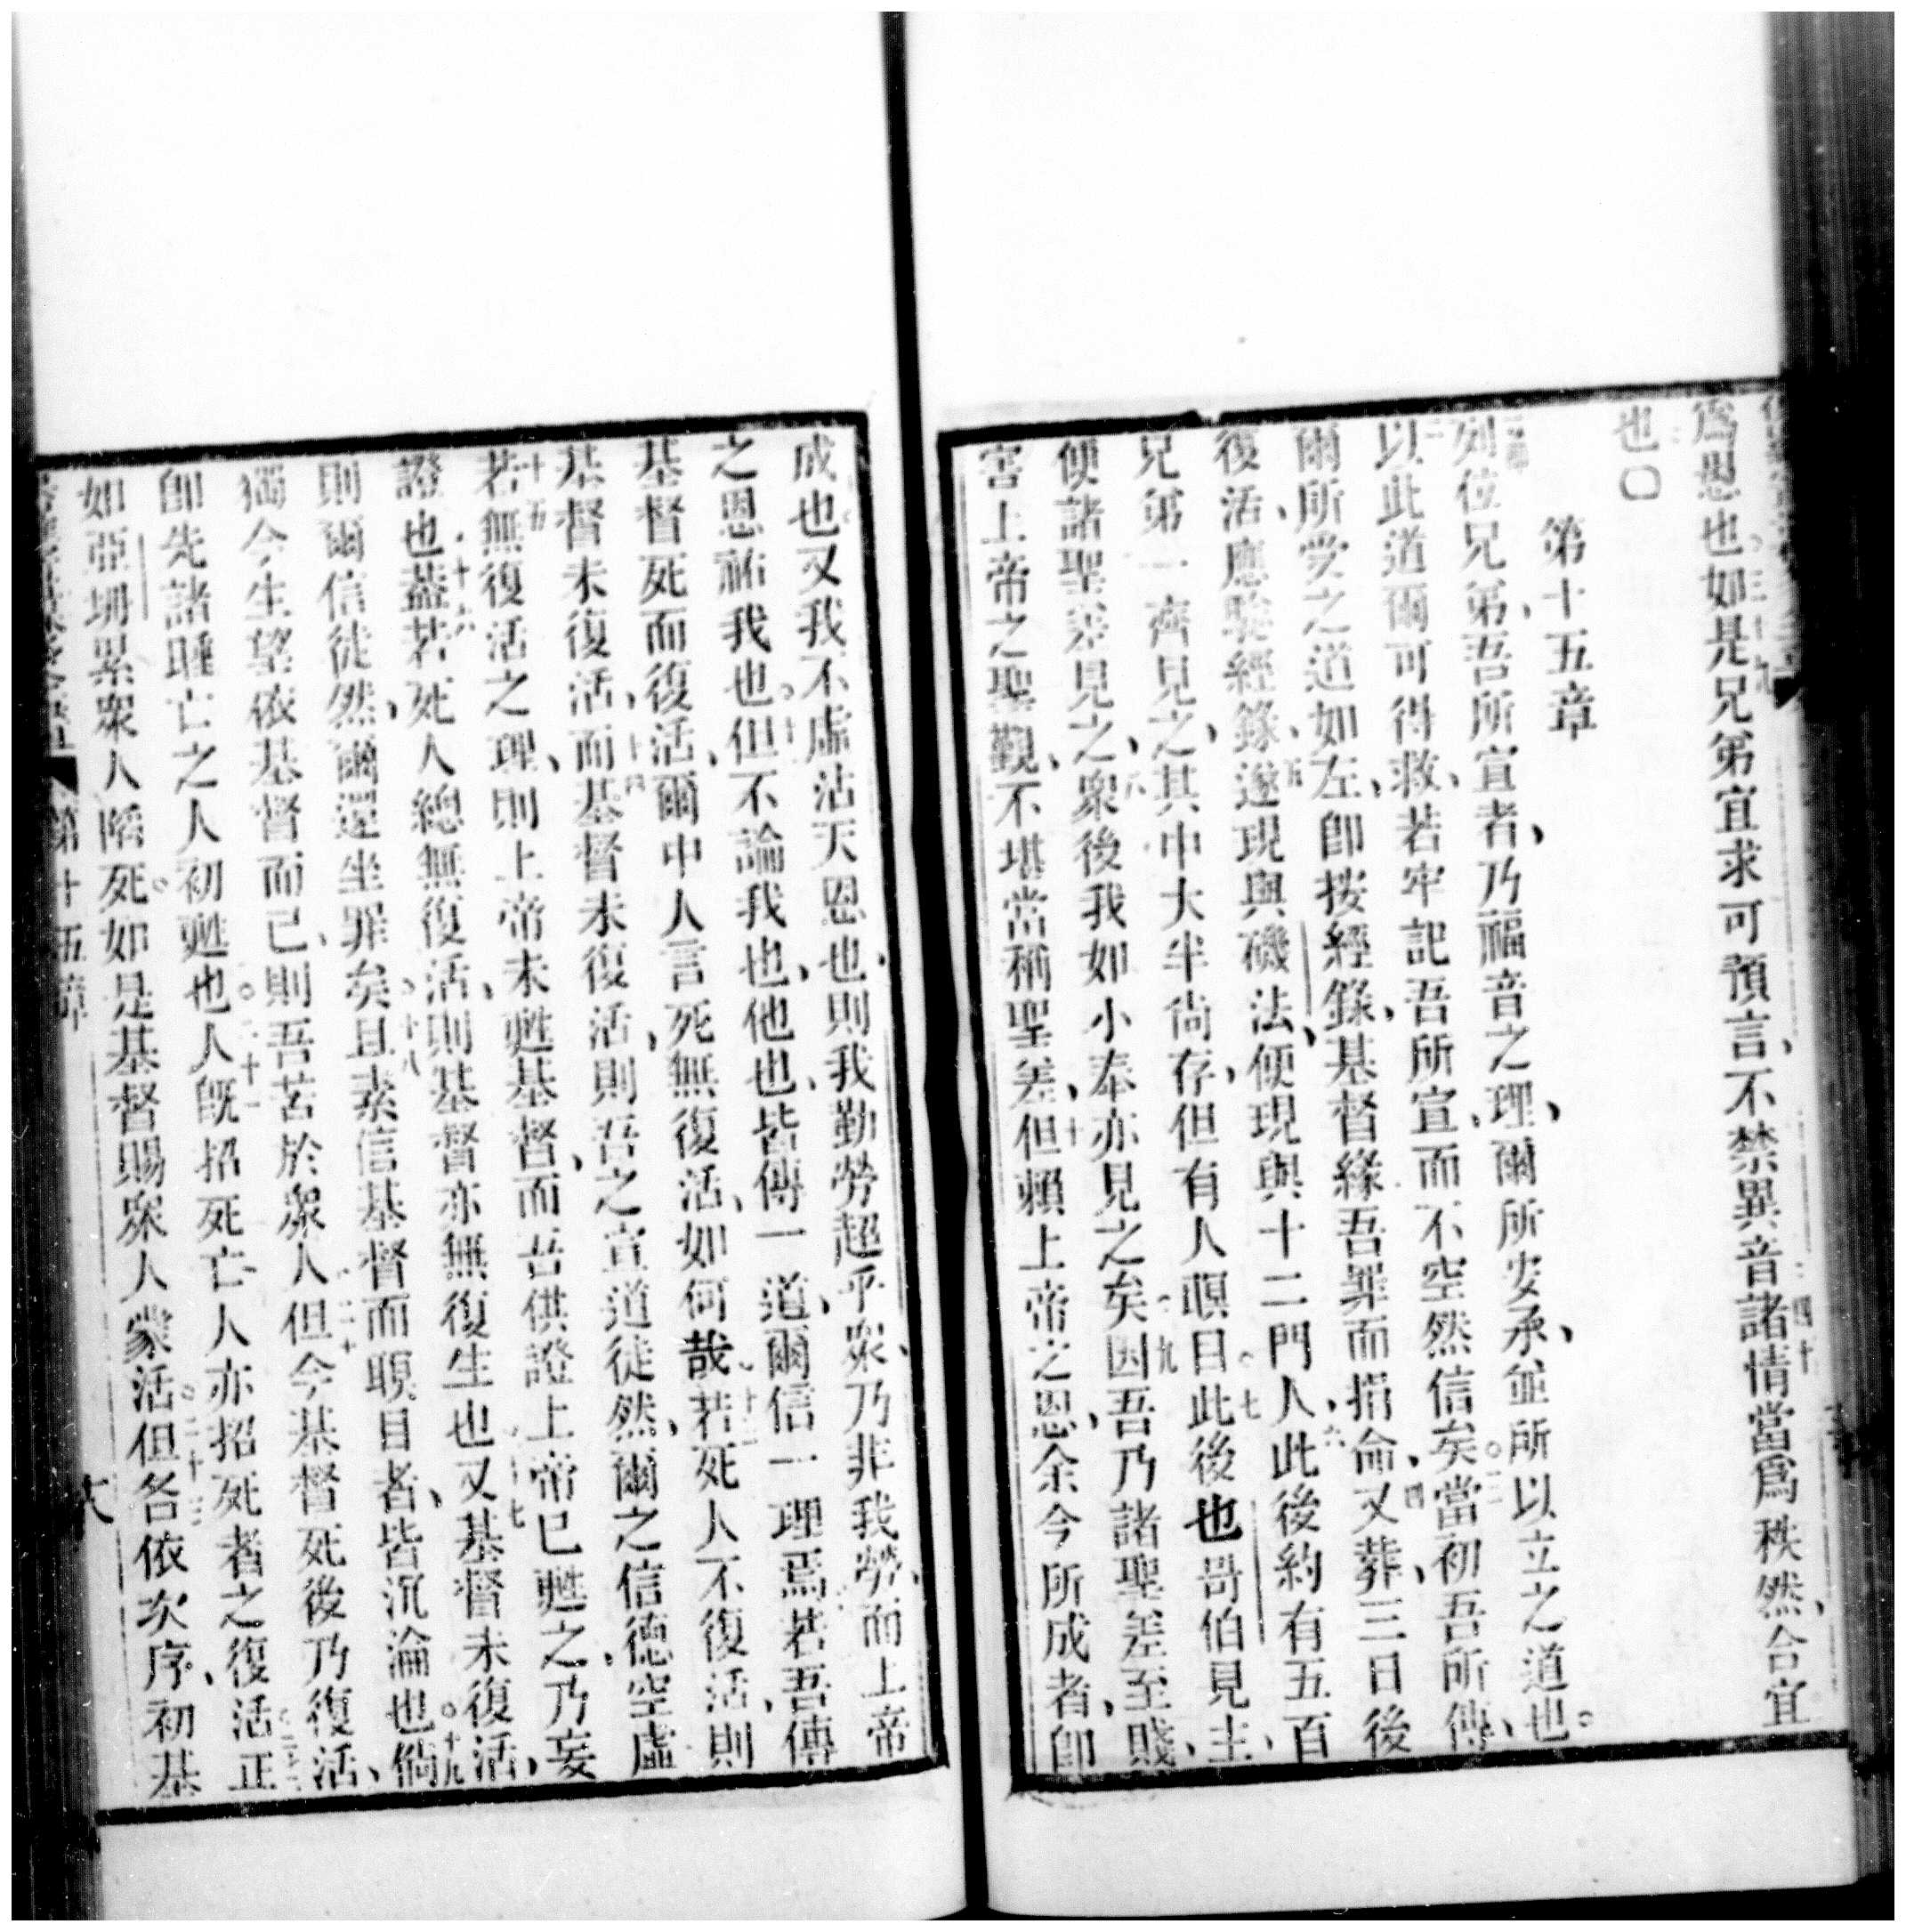 爲愚也。三十九如是兄弟宜求可預言、不禁異音諸情四十當爲秩然、合宜
也〇
第十五章
列位兄弟、吾所宣者、乃福音之理、爾所安承、並所以立之道也。
以此道爾可得救、若牢記吾所宣、而不空然信矣。三當初吾所傳、
爾所受之道如左、卽按經錄、基督緣吾罪而捐命、四又葬、三日後
復活、應驗經錄、五遂現與磯法、便現與十二門人、六此後約有五百
兄弟一齊見之、其中大半尚存、但有人瞑目。七此後也哥伯見主、
便諸聖差見之、八衆後我如小奉亦見之矣。九因吾乃諸聖差至賤、
害上帝之聖觀、不堪當稱聖差、十但賴上帝之恩、余今所成者、卽
成也又我不虛沾天恩也、則我勤勞超乎衆、乃非我勞、而上帝
之恩祐我也。十一但不論我也、他也、皆傳一道、爾信一理焉。若吾傳
基督死而復活、爾中人言死無復活、如何哉。十三若死人不復活、則
基督未復活、十四而基督未復活、則吾之宣道徒然、爾之信德空虛
十五若無復活之理、則上帝未甦基督、而吾供證上帝已甦之、乃妄
證也。十六蓋若死人總無復活、則基督亦無復生也。十七又基督未復活、
則爾信徒然、爾還坐罪矣。十八且素信基督而瞑目者、皆沉淪也。十九倘
獨今生望依基督而已、則吾苦於衆人。二十但今基督死後乃復活、
卽先諸睡亡之人初甦也。二十一人既招死亡、人亦招死者之復活。二十二正
如亞坍累衆人陷死。如是基督賜衆人蒙活。二十三但各依次序、初基
第十五章